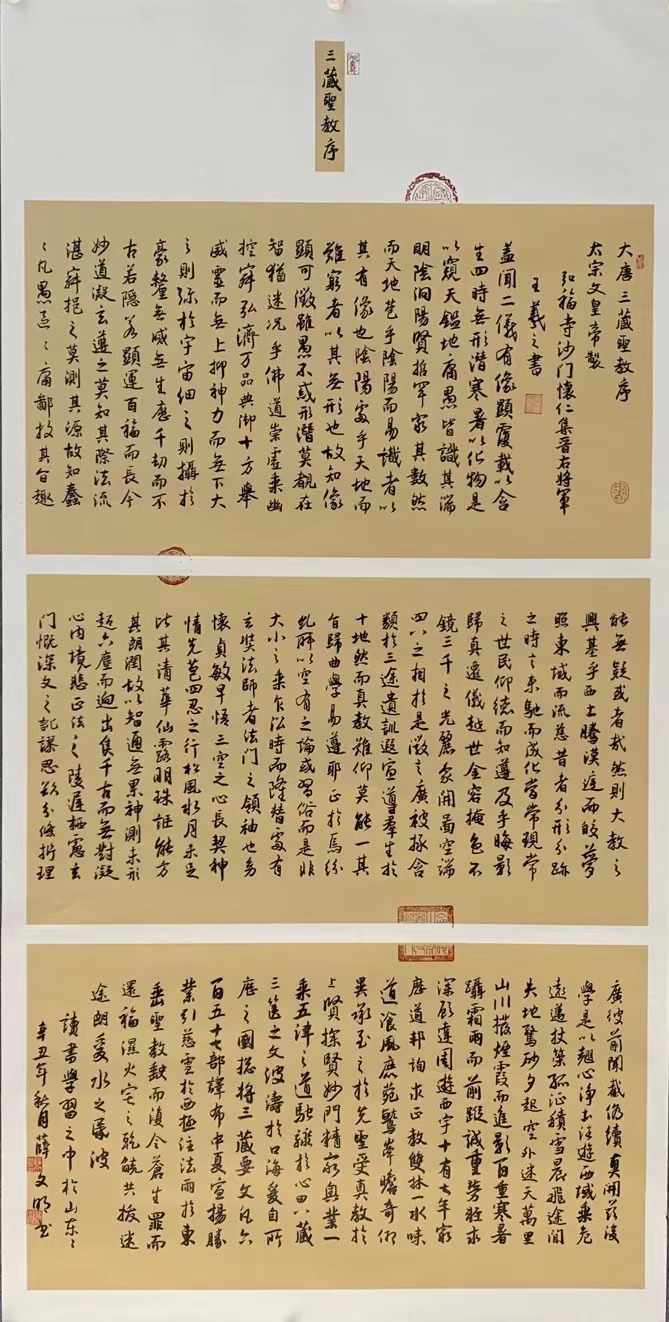 三藏聖教序
大唐三藏聖教序
太宗文皇帝製
弘福寺沙門懷仁集晉右將軍
王羲之書
蓋聞二儀有像顯覆載以含
生四時無形潛寒暑以化物是
以窺天鑑地庸愚皆識其端
明陰洞陽賢哲罕窮其數然
而天地苞乎陰陽而易識者以
其有像也陰陽處乎天地而
難窮者以其無形也故知像
顯可徵雖愚不惑形潛莫覩在
智猶迷況乎佛道崇虛乘幽
控寂弘濟万品典御十方舉
威靈而無上抑神力而無下大
之則彌於宇宙細之則攝於
豪釐無滅無生歷千劫而不
古若隱若顯運百福而長今
妙道凝玄遵之莫知其際法流
湛寂挹之莫測其源故知蠢
〻凡愚區〻庸鄙投其旨趣
能無疑或者哉然則大教之
興基乎西土騰漢庭而皎夢
照東域而流慈昔者分形分跡
之時言未馳而成化當常現常
之世民仰德而知遵及乎晦影
歸真遷儀越世金容掩色不
鏡三千之光麗象開圖空端
四八之相於是微言廣被拯含
類於三途遺訓遐宣導羣生於
十地然而真教難仰莫能一其
旨歸曲學易遵耶正於焉紛
糺所以空有之論或習俗而是非
大小之乘乍沿時而隆替處有
玄奘法師者法門之領袖也幼
懷貞敏早悟三空之心長契神
情先苞四忍之行松風水月未足
比其清華仙露明珠詎能方
其朗潤故以智通無累神測未形
超六塵而迥出隻千古而無對凝
心內境悲正法之陵遲栖慮玄
門慨深文之訛謬思欲分條析理
廣彼前聞截偽續真開茲後
學是以翹心淨土法遊西域乘危
遠邁杖策孤征積雪晨飛途間
失地驚砂夕起空外迷天萬里
山川撥煙霞而進影百重寒暑
躡霜雨而前蹤誠重勞輕求
深願達周遊西宇十有七年窮
歷道邦詢求正教雙林八水味
道飡風鹿菀鷲峯瞻奇仰
異承至言於先聖受真教於
上賢探賾妙門精窮奧業一
乘五律之道馳驟於心田八藏
三篋之文波濤於口海爰自所
歷之國總將三藏要文凡六
百五十七部譯布中夏宣揚勝
業引慈雲於西極注法雨於東
垂聖教缺而復全蒼生罪而
還福濕火宅之乾燄共拔迷
途朗愛水之昏波
讀書學習之中於山東
辛丑年秋月薛文明書